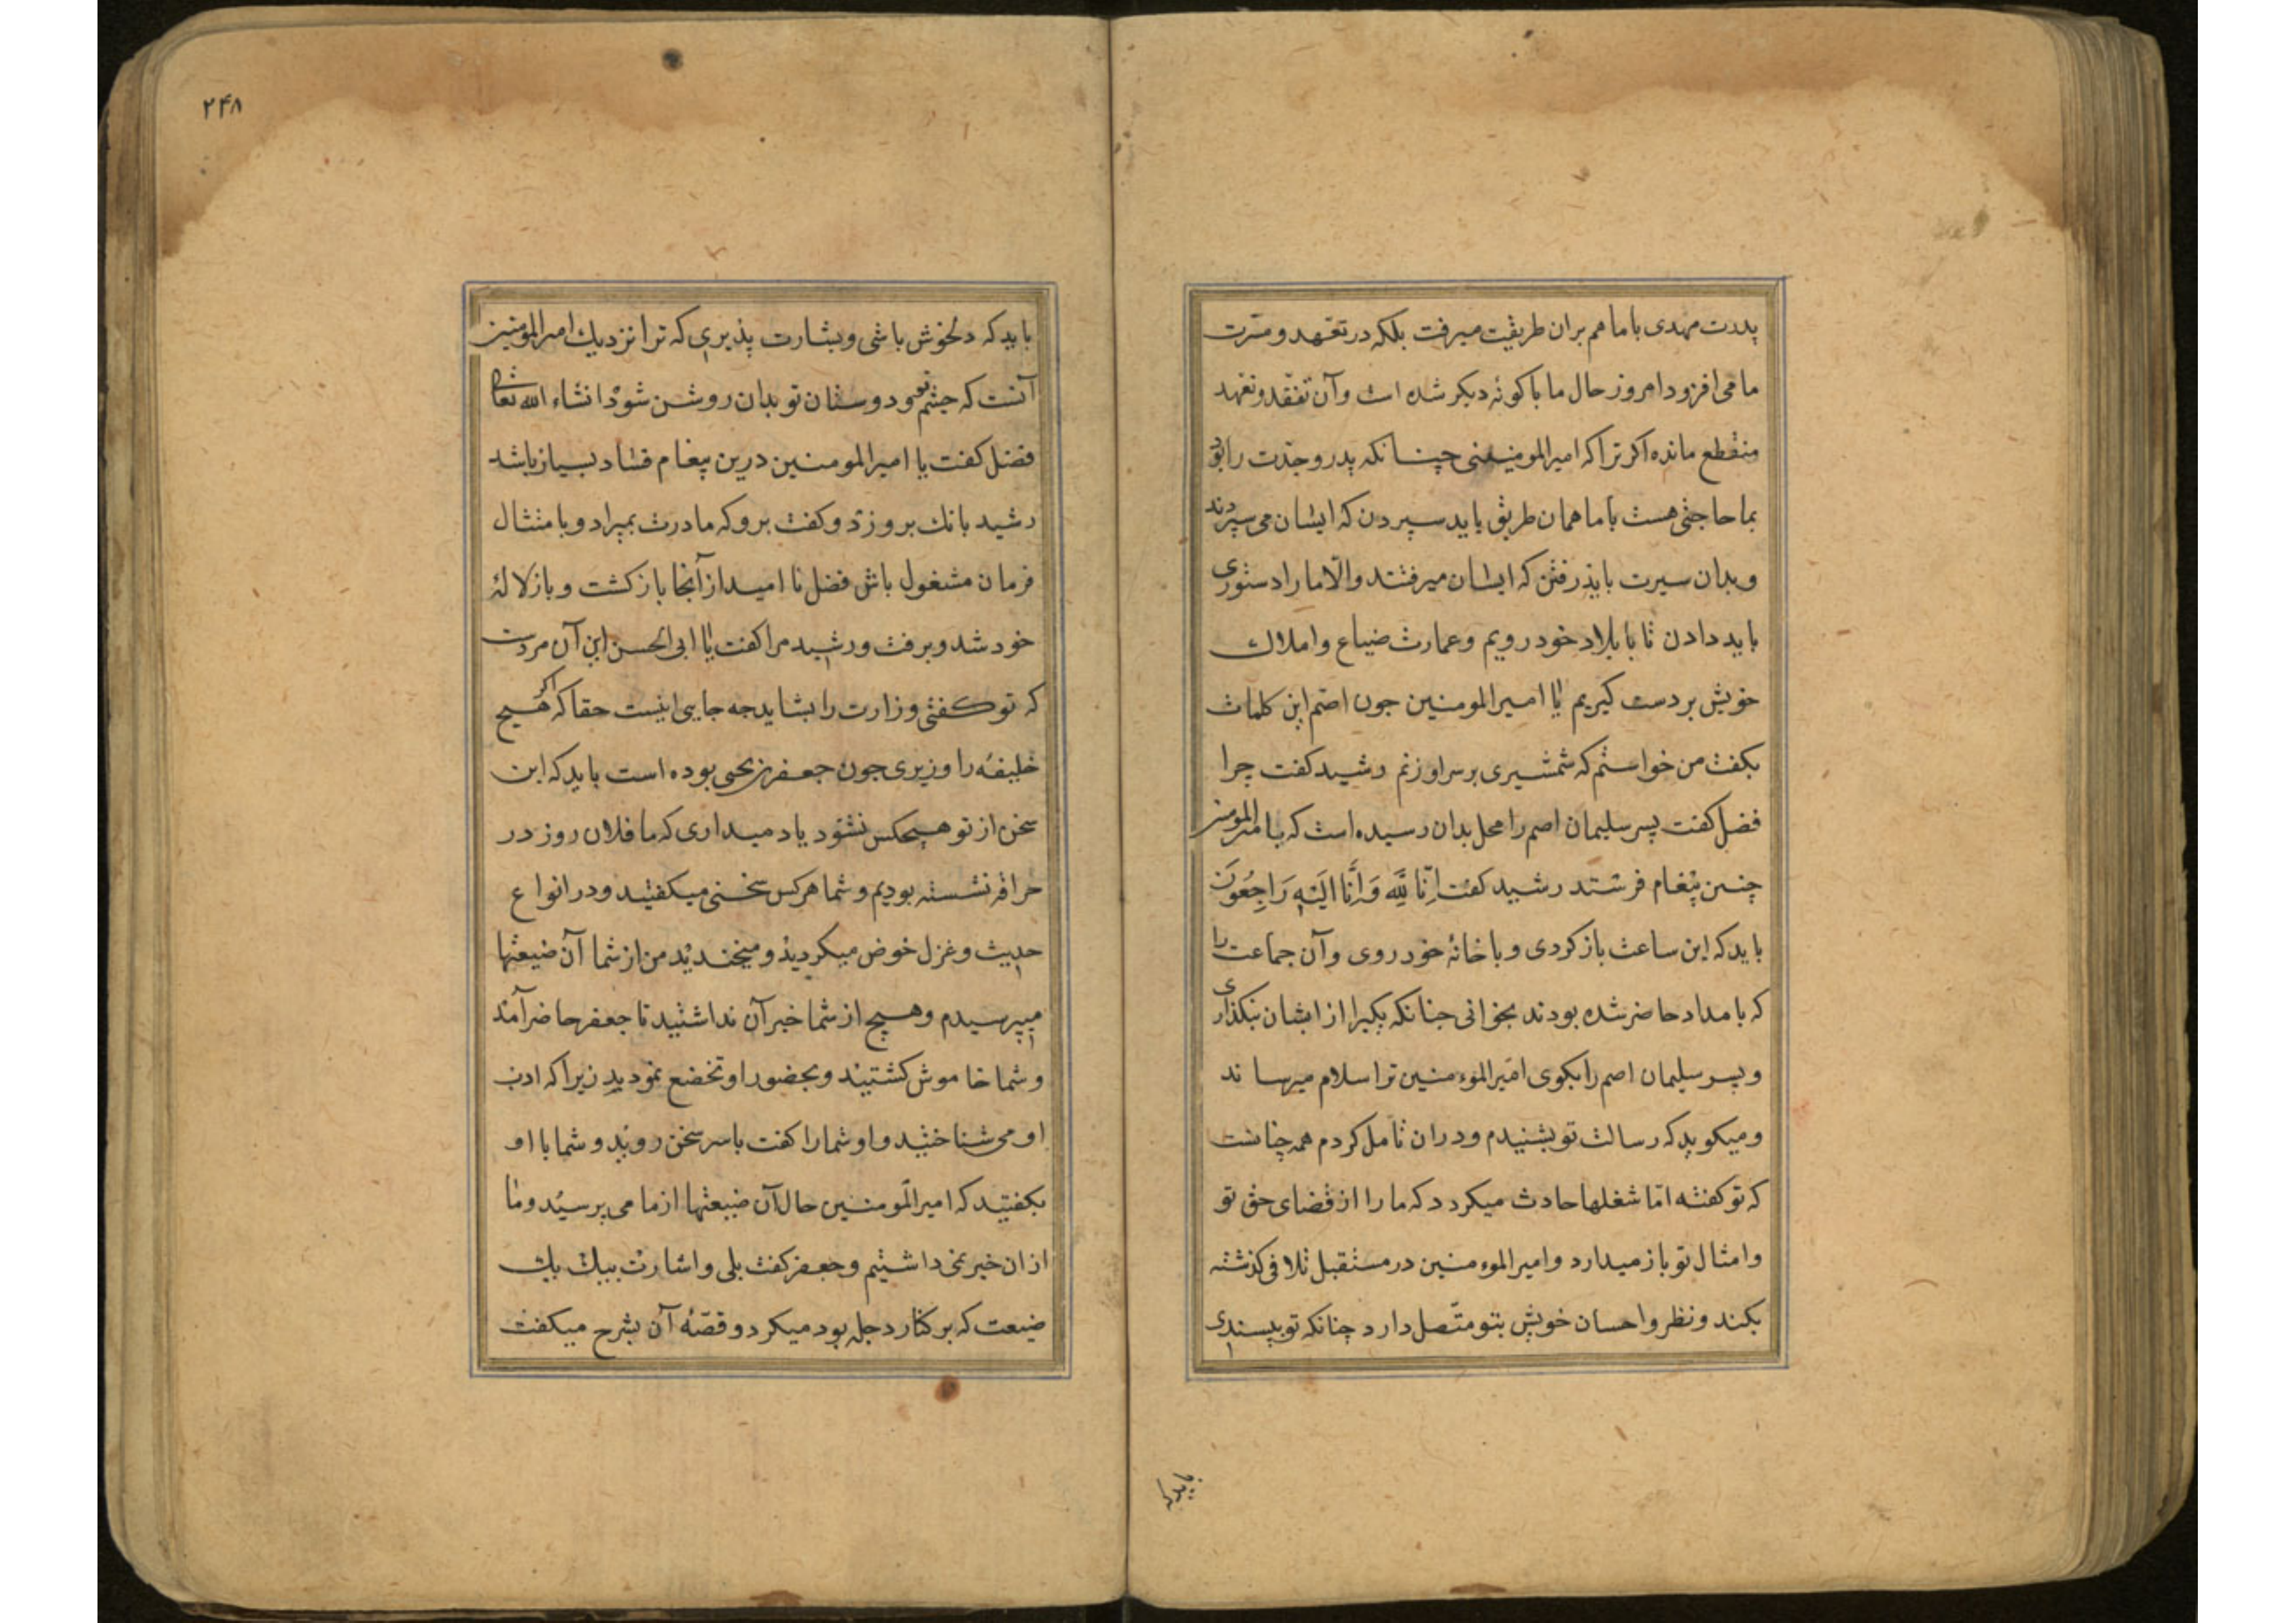 پدرت مهدی با ما هم بران طریقت میرفت بلکه در تعهد و مسرت
ما می افزود امروز حال ما با کونهٔ دیکر شده است و آن تفقد و تعهد
منقطع مانده اکر ترا که امیرالمومنینی چنانکه پدر و جدت را بود
بما حاجتی هست با ما همان طریق باید سپردن که ایشان می سپردند
و بدان سیرت باید رفتن که ایشان میرفتند و الّا ما را دستوری
باید دادن تا با بلاد خود رویم و عمارت ضیاع و املاک
خویش بر دست کیریم یا امیرالمومنین جون اصم این کلمات
بکفت من خواستم که شمشیری بر سر او زنم رشید کفت چرا
فضل کفت پسر سلیمان اصم را محل بدان رسیده است که با امیرالمومنین
چنین پیغام فرستد رشید کفت اِنّا لِلّه وَ اِنَّا اِلَیْهِ رَاجِعُونَ
باید که این ساعت باز کردی و با خانهٔ خود روی و آن جماعت را
که بامداد حاضر شده بودند بخوانی جنانکه یکیرا از ایشان نکذاری
و پسر سلیمان اصم را بکوی امیرالموءمنین ترا سلام میرساند
و میکوید که رسالت تو بشنیدم و دران تامل کردم همه چنانست
که تو کفته امّا شغلها حادث میکردد که ما را از قضای حق تو
و امثال تو باز میدارد و امیرالموءمنین در مستقبل تلافی کذشته
بکند و نظر و احسان خویش بتو متّصل دارد چنانکه تو بپسندی
باید که
۲۴۸
باید که دلخوش باشی و بشارت پذیری که ترا نزدیک امیرالمومنین
آنست که جشم تو و دوستان تو بدان روشن شود انشاء الله تعالی
فضل کفت یا امیرالمومنین درین پیغام فساد بسیار باشد
رشید بانک برو زد و کفت برو که مادرت بمیراد و بامتثال
فرمان مشغول باش فضل نا امید از آنجا باز کشت و باز لالهٔ
خود شد و برفت و رشید مرا کفت یا ابی الحسن این آن مردست
که تو کفتی وزارت را بشاید جه جای اینست حقا که اکر هیج
خلیفه را وزیری جون جعفر بن یحیی بوده است باید که این
سخن از تو هیچکس نشنود یاد میداری که ما فلان روز در
حراقه نشسته بودیم و شما هر کس سخنی میکفتید و در انواع
حدیث و غزل خوض میکردید و میخندیدید من از شما آن ضیعتها
میپرسیدم و هیچ از شما خبر آن نداشتید تا جعفر حاضر آمد
و شما خاموش کشتید و بحضور او تخضع نمودید زیرا که ادب
او می شناختید و او شما را کفت با سر سخن روید و شما با او
بکفتید که امیرالمومنین حال آن ضیعتها از ما می پرسید و ما
از ان خبر نمی داشتیم و جعفر کفت بلی و اشارت بیک یک
ضیعت که بر کنار دجله بود میکرد و قصّهٔ آن بشرح میکفت